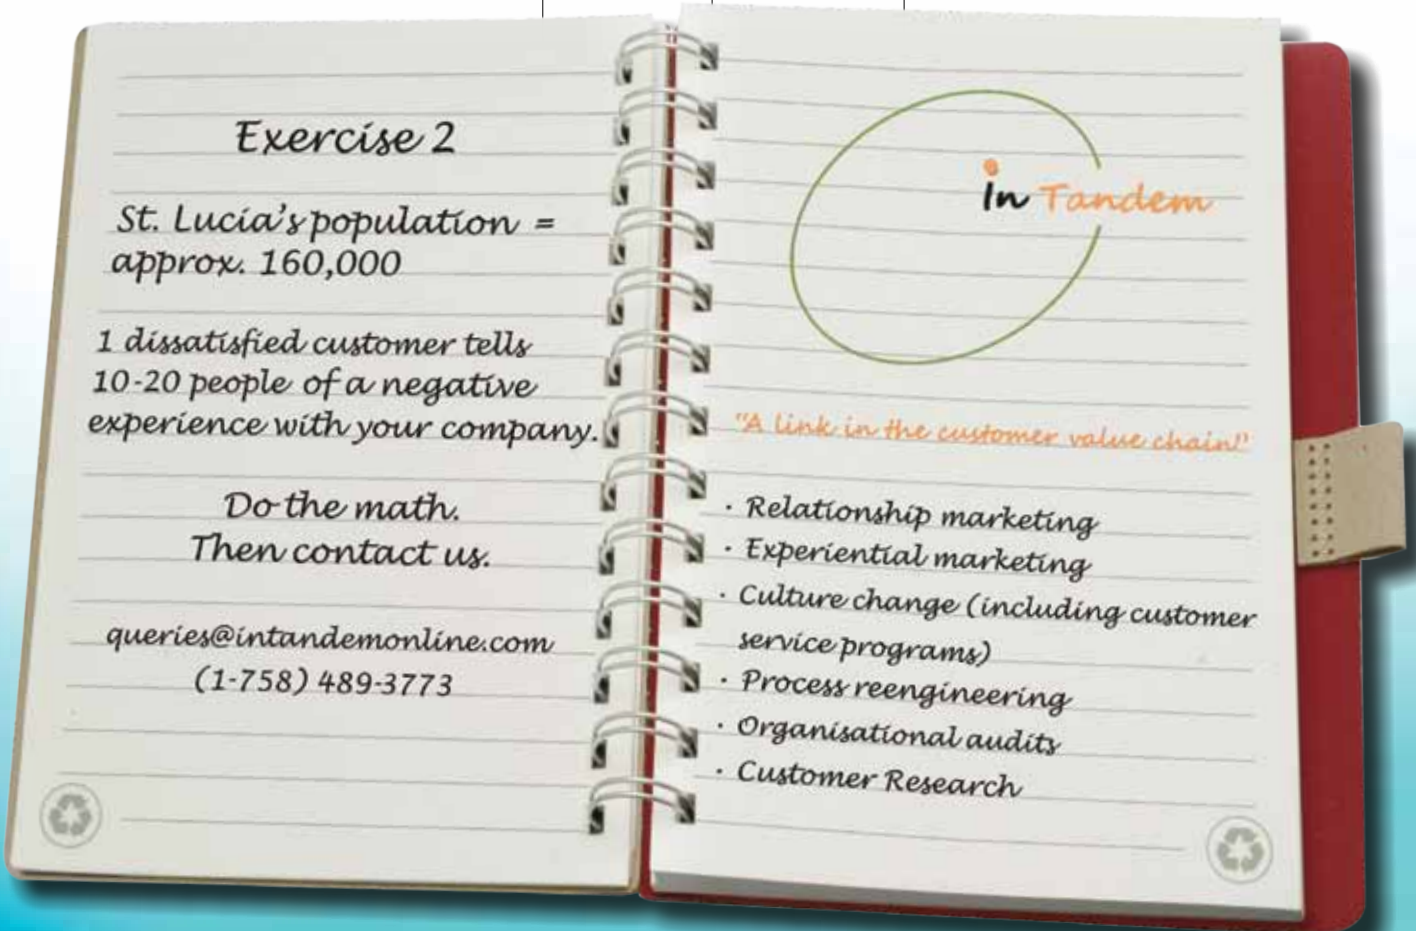 Exercise 2
St. Lucia's population =
approx. 160,000
1 dissatisfied customer tells
10-20 people of a negative
experience with your company.
Do the math.
Then contact us.
queries@intandemonline.com
(1-758) 489-3773
in Tandem
"A link in the customer value chain!"
· Relationship marketing
· Experiential marketing
· Culture change (including customer
service programs)
· Process reengineering
· Organisational audits
· Customer Research